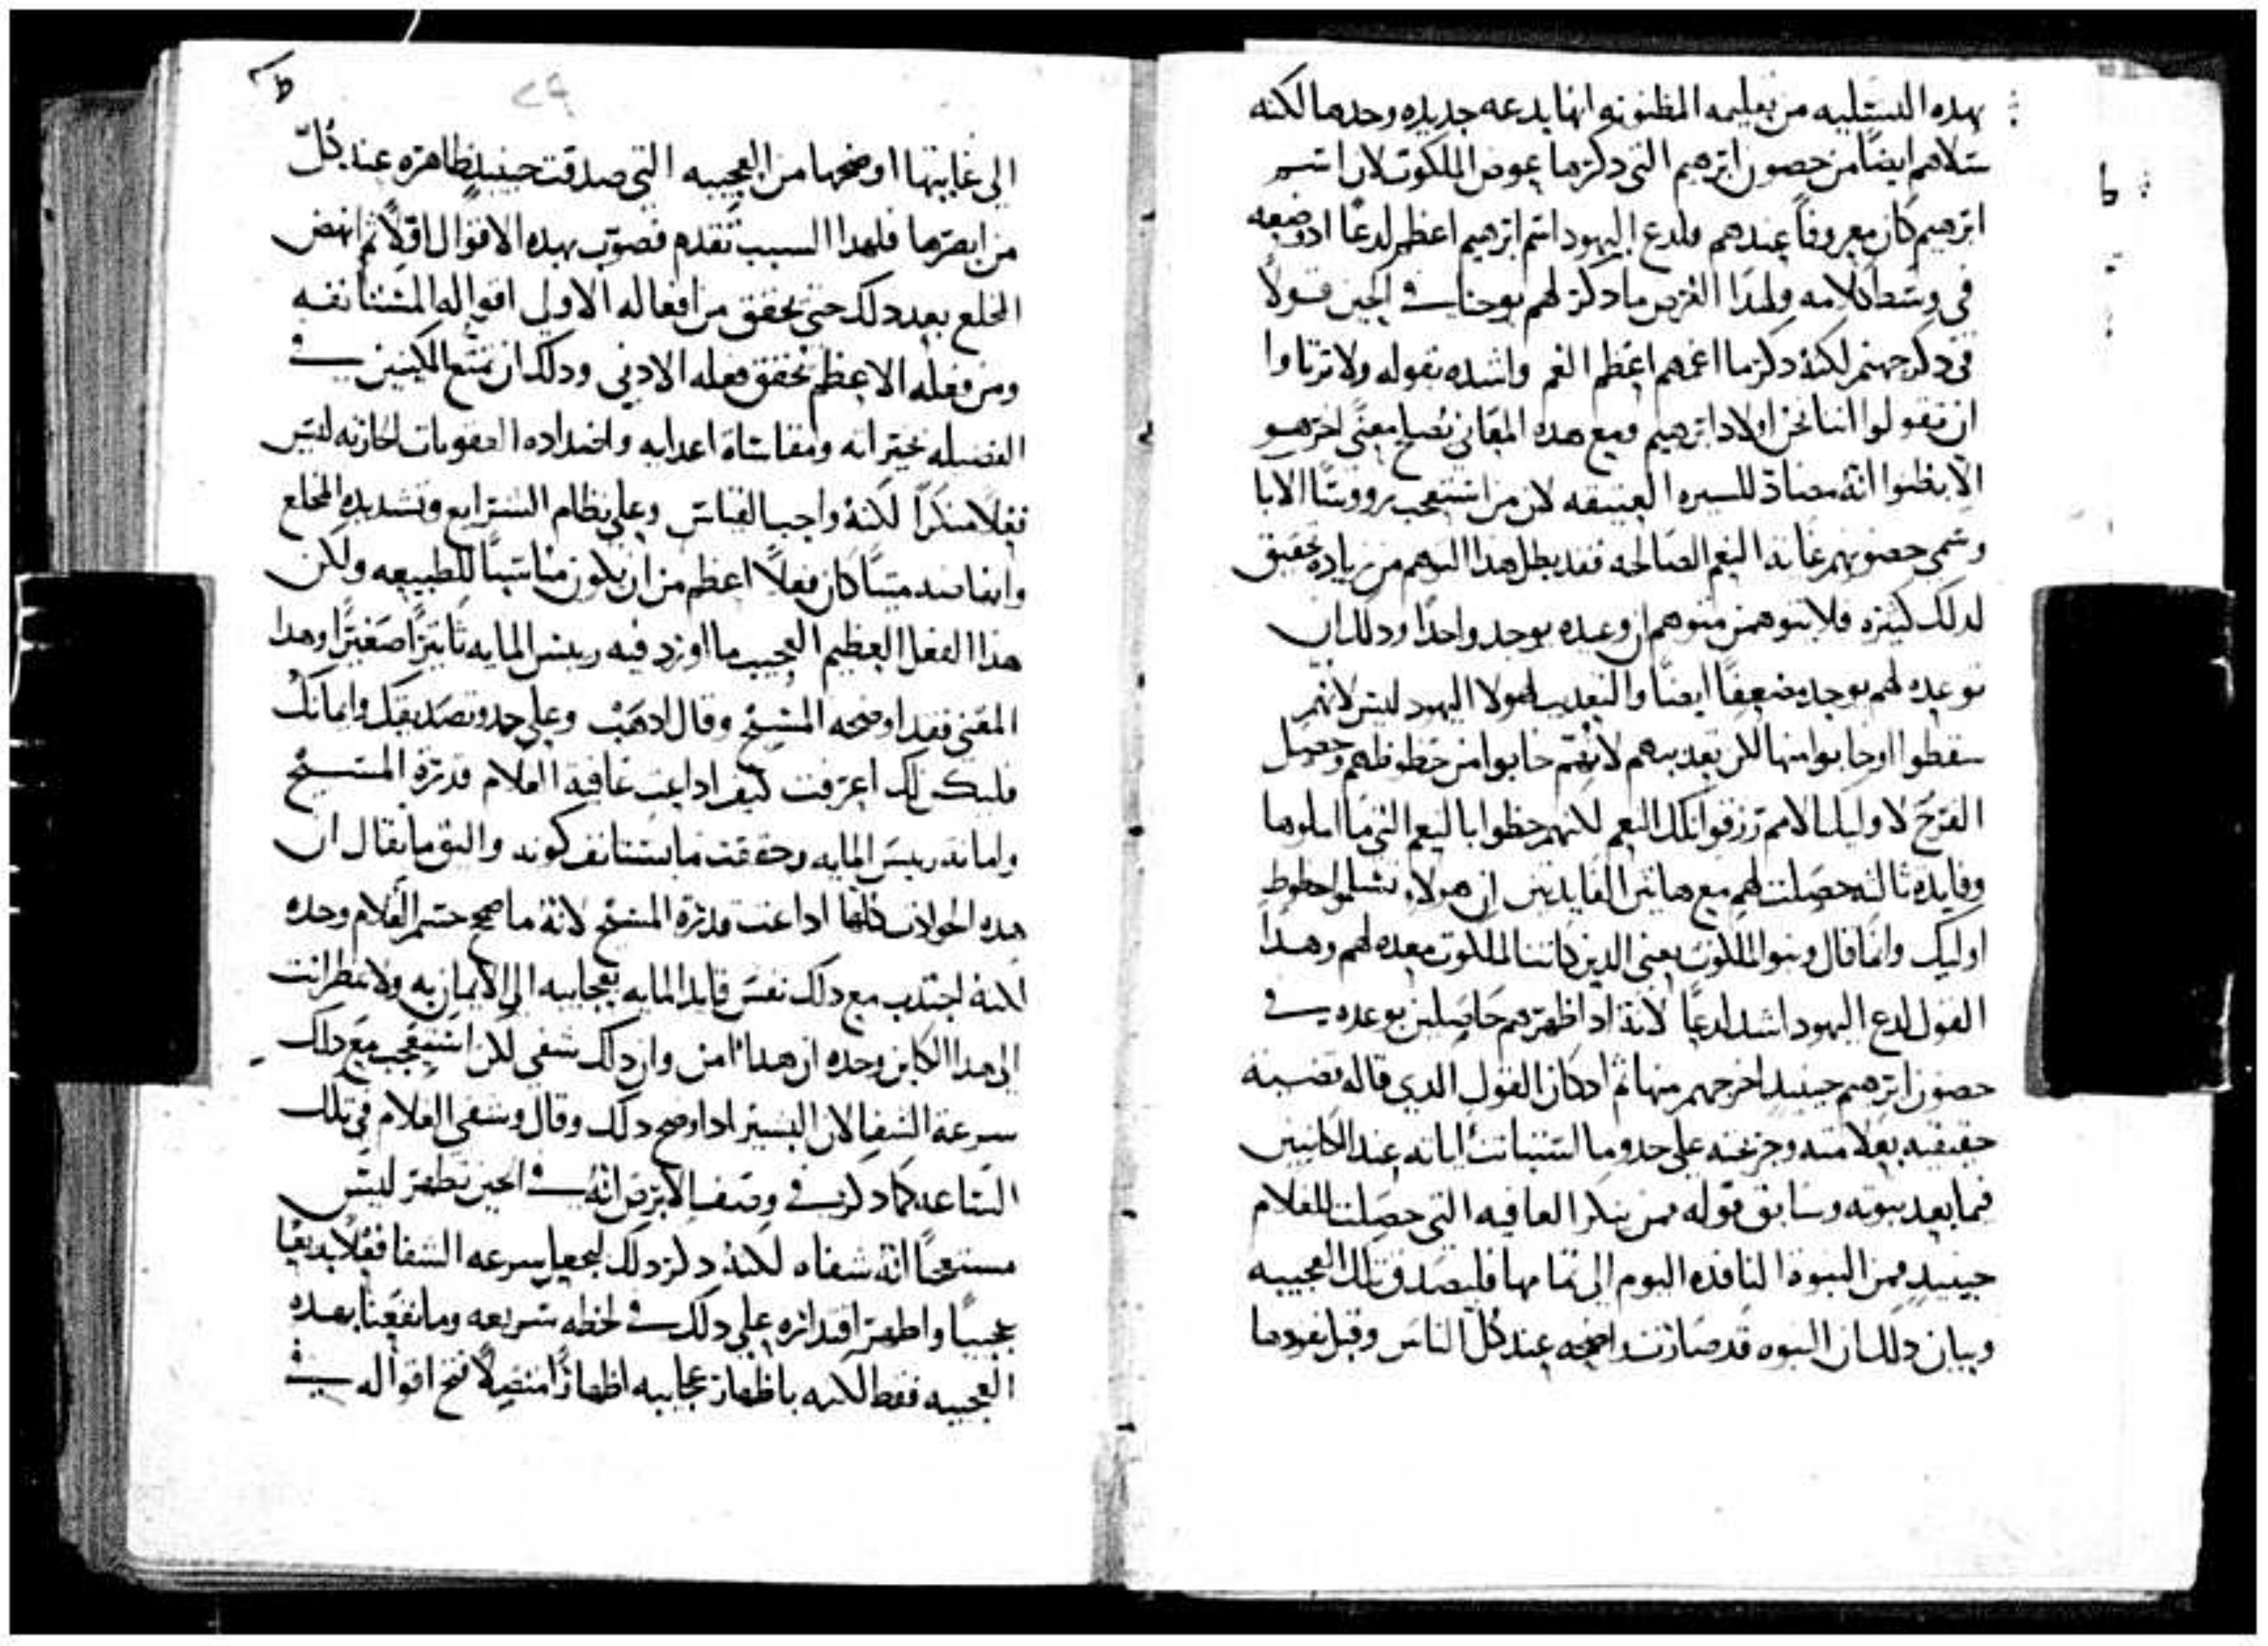 بهده التسليه من تعليمه المظنونه انها بدعه جديده وحدها لكنه
سلاهم ايضًا من حصون ابرهيم التي دكرها عوض الملكوت لان اسم
ابرهيم كان معروفًا عندهم فلدع اليهود اسم ابرهيم اعظم لدعًا اد وضعه
في وسط كلامه ولهدا الغرض ما دكر لهم يوحنا في الحين قولًا
في دكر جهنم لكنه دكر ما اغمهم اعظم الغم واشده بقوله ولا ترتاوا
ان تقولوا اننا نحن اولاد ابرهيم ومع هده المعاني يصلح معنًى اخر هو
الا يظنوا انه مضاد للسيره العتيقه لان من استعجب بروسا الابا
وسمى حضونهم غاية النعم الصالحه فقد بطل هدا التوهم من زياده تحقيق
لدلك كثيره فلا يتوهمن متوهم ان وعده يوجد واحدًا ودلك ان
توعده لهم يوجد مضعفًا ايضًا والتعديب لهولا اليهود ليس لانهم
سقطوا او خابوا منها لان تعديبهم لانهم خابوا من حظوظهم وحصل
الفرح لاوليك الامم رزقوا تلك النعم لانهم حظوا بالنعم التي ما املوها
وفايده ثالثه حصلت لهم مع هاتين الفايدتين ان هولاء تسلموا حظوظ
اوليك وانما قال وبنو الملكوت يعني الدين كانت الملكوت معده لهم وهدا
القول لدع اليهود اشد لدعًا لانه اد اظهرهم حاصلين بوعده في
حصون ابرهيم حينيد اخرجهم منها ثم اد كان القول الدي قاله قضيه
حقيقيه بعلامته وجزعنه على حدو ما استبانت اياته عند الكاينين
فيما بعد بنبوته وسابق قوله فمن ينكر العافيه التي حصلت للغلام
حينيد فمن النبوه النافده اليوم الى تمامها فليصدق تلك العجيبه
وبيان دلك ان النبوه قد صارت واضحه عند كل الناس وقبل نفودها
الى غايتها اوضحها من العجيبه التي صدقت حينيد ظاهره عند كل
من ابصرها فلهدا السبب تقدم فصوب بهده الاقوال اولًا ثم انهض
المخلع بعد دلك حتى يحقق من افعاله الاولى اقواله المستانفه
ومن فعله الاعظم يحقق فعله الادنى ودلك ان تمتع المكينين في
الفضيله بخيراته ومقاساة اعدايه واضداده العقوبات الحازنه ليس
فعلًا منكرًا لكنه واجب القياس وعلى نظام الشرايع وتشديده المخلع
وانهاضه ميتًا كان فعلًا اعظم من ان يكون مناسبًا للطبيعه ولكن
هدا الفعل العظيم العجيب ما اورد فيه رييس المايه تاثيرًا صغيرًا وهدا
المعنى فقد اوضحه المسيح وقال ادهب وعلى حدو تصديقك وايمانك
فليكن لك اعرفت كيف اداعت عافية الغلام قدرة المسيح
وامانة رييس المايه وحققت ما يستانف كونه واليق ما يقال ان
هده الحوادث كلها اداعت قدرة المسيح لانه ما صحح جسم الغلام وحده
لكنه اجتدب مع دلك نفس قايد المايه بعجايبه الى الايمان به ولا تنظر انت
الى هدا الكاين وحده ان هدا امن وان داك شفي لكن استعجب مع دلك
سرعة الشفا لان البشير اد اوضح دلك وقال وشفي الغلام في تلك
الساعه كما دكر في وصف الابرص انه في الحين تطهر ليس
مستعجبًا انه شفاه لكنه دكر دلك ليجعل سرعه الشفا فعلًا بديعًا
عجيبًا واظهر اقتداره على دلك في لحظه سريعه وما نفعنا بهده
العجيبه فقط لكنه باظهار عجايبه اظهارًا متصلًا فتح اقواله في